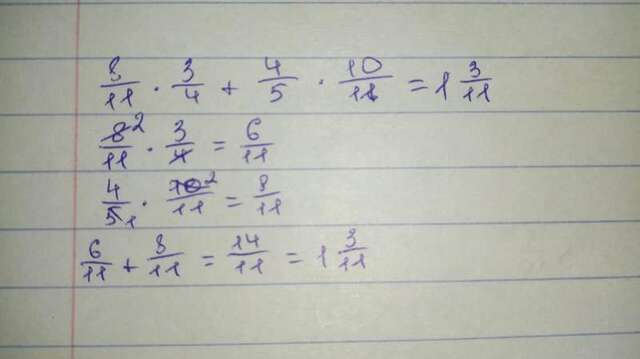 8/11 · 3/4 + 4/5 · 10/11 = 1 3/11
8²/11 · 3/4 = 6/11
4/5₁ · 10²/11 = 8/11
6/11 + 8/11 = 14/11 = 1 3/11